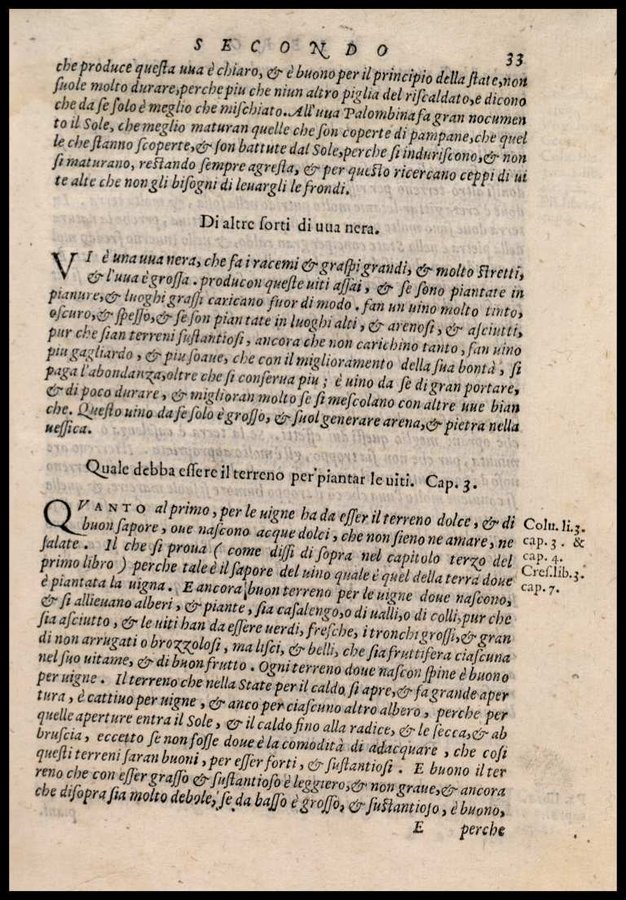 SECONDO 33
che produce queſta uua è chiaro, & è buono per il principio della ſtate, non
ſuole molto durare, perche piu che niun altro piglia del riſcaldato, e dicono
che da ſe ſolo è meglio che miſchiato. All'uua Palombina fa gran nocumen
to il Sole, che meglio maturan quelle che ſon coperte di pampane, che quel
le che ſtanno ſcoperte, & ſon battute dal Sole, perche ſi induriſcono, & non
ſi maturano, reſtando ſempre agreſta, & per queſto ricercano ceppi di ui
te alte che non gli biſogni di leuargli le frondi.
Di altre ſorti di uua nera.
VI è una uua nera, che fa i racemi & graſpi grandi, & molto ſtretti,
& l'uua è groſſa. producon queſte uiti aſſai, & ſe ſono piantate in
pianure, & luoghi graſſi caricano fuor di modo. fan un uino molto tinto,
oſcuro, & ſpeſſo, & ſe ſon piantate in luoghi alti, & arenoſi, & aſciutti,
pur che ſian terreni ſuſtantioſi, ancora che non carichino tanto, fan uino
piu gagliardo, & piu ſoaue, che con il miglioramento della ſua bontà, ſi
paga l'abondanza, oltre che ſi conſerua piu; è uino da ſe di gran portare,
& di poco durare, & miglioran molto ſe ſi meſcolano con altre uue bian
che. Queſto uino da ſe ſolo è groſſo, & ſuol generare arena, & pietra nella
ueſſica.
Quale debba eſſere il terreno per piantar le uiti. Cap. 3.
QVANTO al primo, per le uigne ha da eſſer il terreno dolce, & di
buon ſapore, oue naſcono acque dolci, che non ſieno ne amare, ne
ſalate. Il che ſi proua ( come diſſi di ſopra nel capitolo terzo del
primo libro ) perche tale è il ſapore del uino quale è quel della terra doue
è piantata la uigna. E ancora buon terreno per le uigne doue naſcono,
& ſi allieuano alberi, & piante, ſia caſalengo, o di ualli, o di colli, pur che
ſia aſciutto, & le uiti han da eſſere uerdi, freſche, i tronchi groſſi, & gran
di non arrugati o brozzoloſi, ma liſci, & belli, che ſia fruttifera ciaſcuna
nel ſuo uitame, & di buon frutto. Ogni terreno doue naſcon ſpine è buono
per uigne. Il terreno che nella State per il caldo ſi apre, & fa grande aper
tura, è cattiuo per uigne, & anco per ciaſcuno altro albero, perche per
quelle aperture entra il Sole, & il caldo fino alla radice, & le ſecca, & ab
bruſcia, eccetto ſe non foſſe doue è la comodità di adacquare, che coſi
queſti terreni ſaran buoni, per eſſer forti, & ſuſtantioſi. E buono il ter
reno che con eſſer graſſo & ſuſtantioſo è leggiero, & non graue, & ancora
che diſopra ſia molto debole, ſe da baſſo è groſſo, & ſuſtantioſo, è buono,
E perche
Colu. li. 3.
cap. 3. &
cap. 4.
Creſ. lib. 3.
cap. 7.